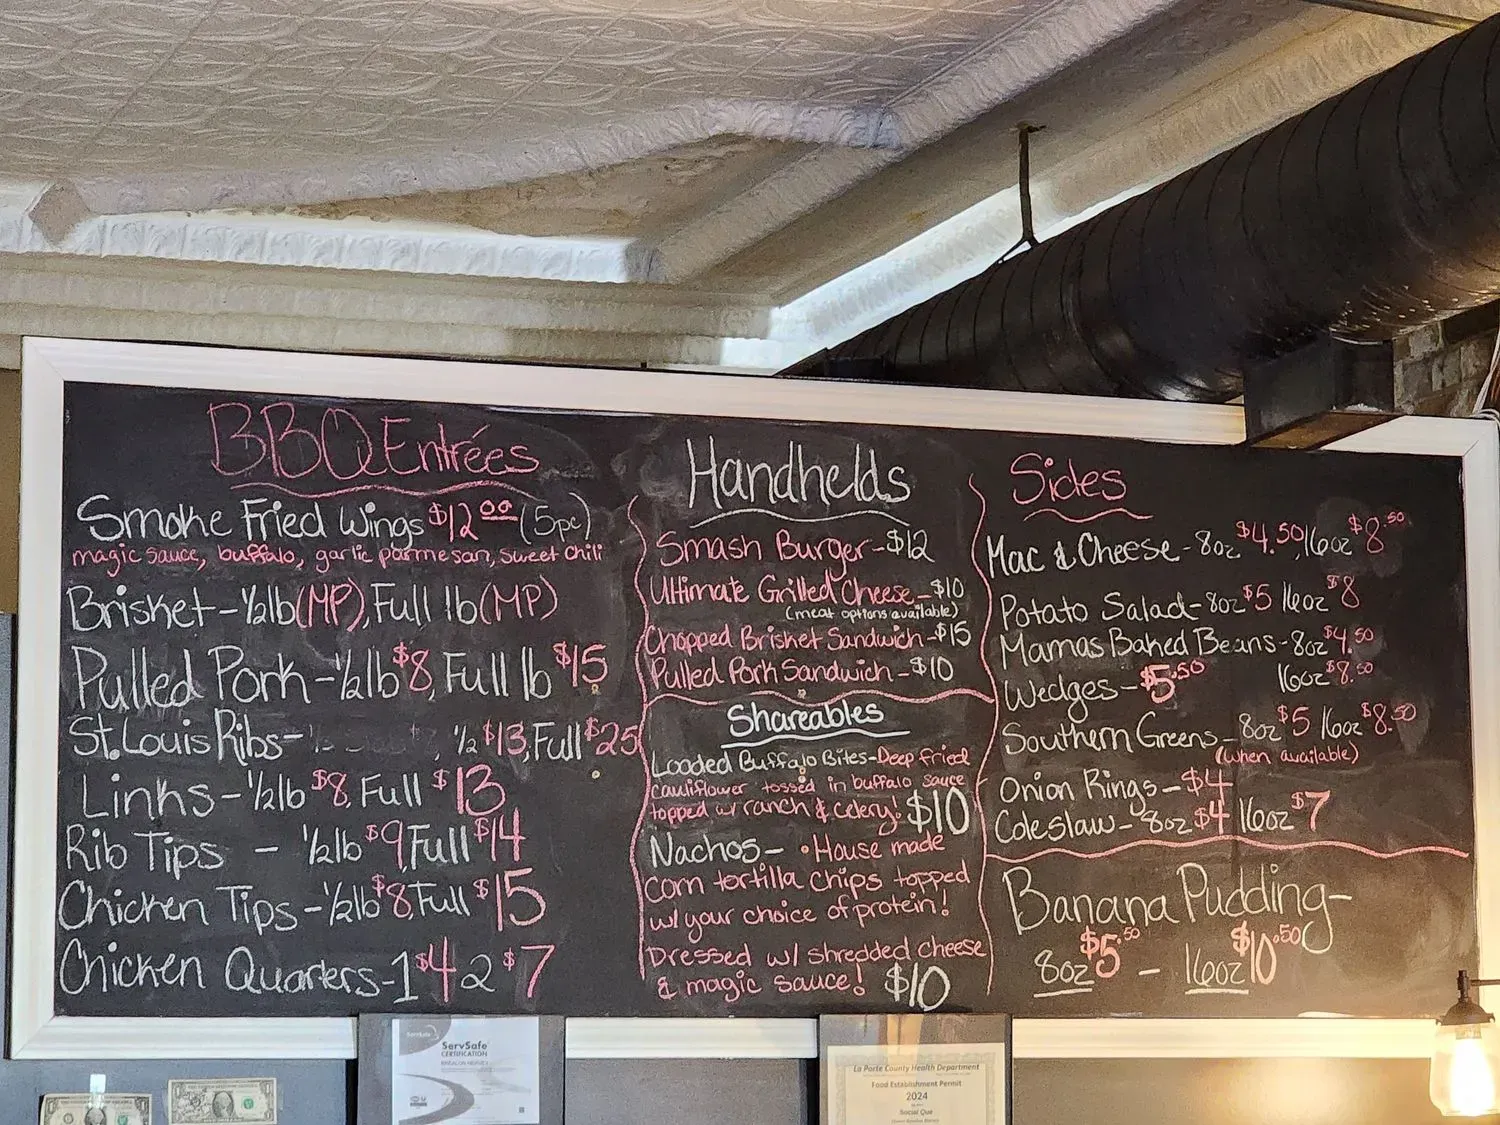 BBQ Entrées
Smoke Fried Wings $12.00 (5pc)
magic sauce, buffalo, garlic parmesan, sweet chili
Brisket - ½lb (MP), Full lb (MP)
Pulled Pork - ½lb $8, Full lb $15
St. Louis Ribs - ½ $13, Full $25
Links - ½lb $8, Full $13
Rib Tips - ½lb $9, Full $14
Chicken Tips - ½lb $8, Full $15
Chicken Quarters - 1 $4 2 $7
Handhelds
Smash Burger - $12
Ultimate Grilled Cheese - $10
(meat options available)
Chopped Brisket Sandwich - $15
Pulled Pork Sandwich - $10
Shareables
Loaded Buffalo Bites - Deep fried
cauliflower tossed in buffalo sauce
topped w/ ranch & celery! $10
Nachos - • House made
corn tortilla chips topped
w/ your choice of protein!
Dressed w/ shredded cheese
& magic sauce! $10
Sides
Mac & Cheese - 8oz $4.50, 16oz $8.50
Potato Salad - 8oz $5 16oz $8
Mamas Baked Beans - 8oz $4.50
16oz $8.50
Wedges - $5.50
Southern Greens - 8oz $5 16oz $8.50
(when available)
Onion Rings - $4
Coleslaw - 8oz $4 16oz $7
Banana Pudding -
8oz $5.50 - 16oz $10.50
ServSafe
ServSafe
CERTIFICATION
La Porte County Health Department
Food Establishment Permit
2024
Social Que